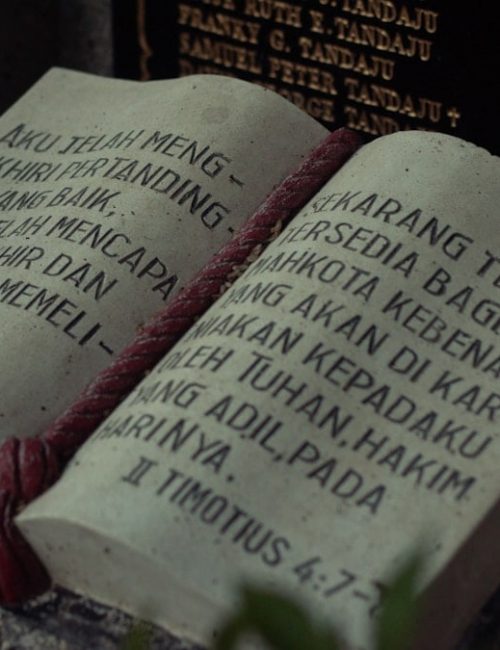 RUTH E. TANDAJU
FRANKY G. TANDAJU
SAMUEL PETER TANDAJU +
AKU TELAH MENG-
KHIRI PERTANDING-
YANG BAIK,
ELAH MENCAPA
HIR DAN
MEMELI-
SEKARANG TE
TERSEDIA BAGI
MAHKOTA KEBENA
YANG AKAN DI KAR
NIAKAN KEPADAKU
OLEH TUHAN, HAKIM
YANG ADIL, PADA
HARINYA.
II TIMOTIUS 4:7-